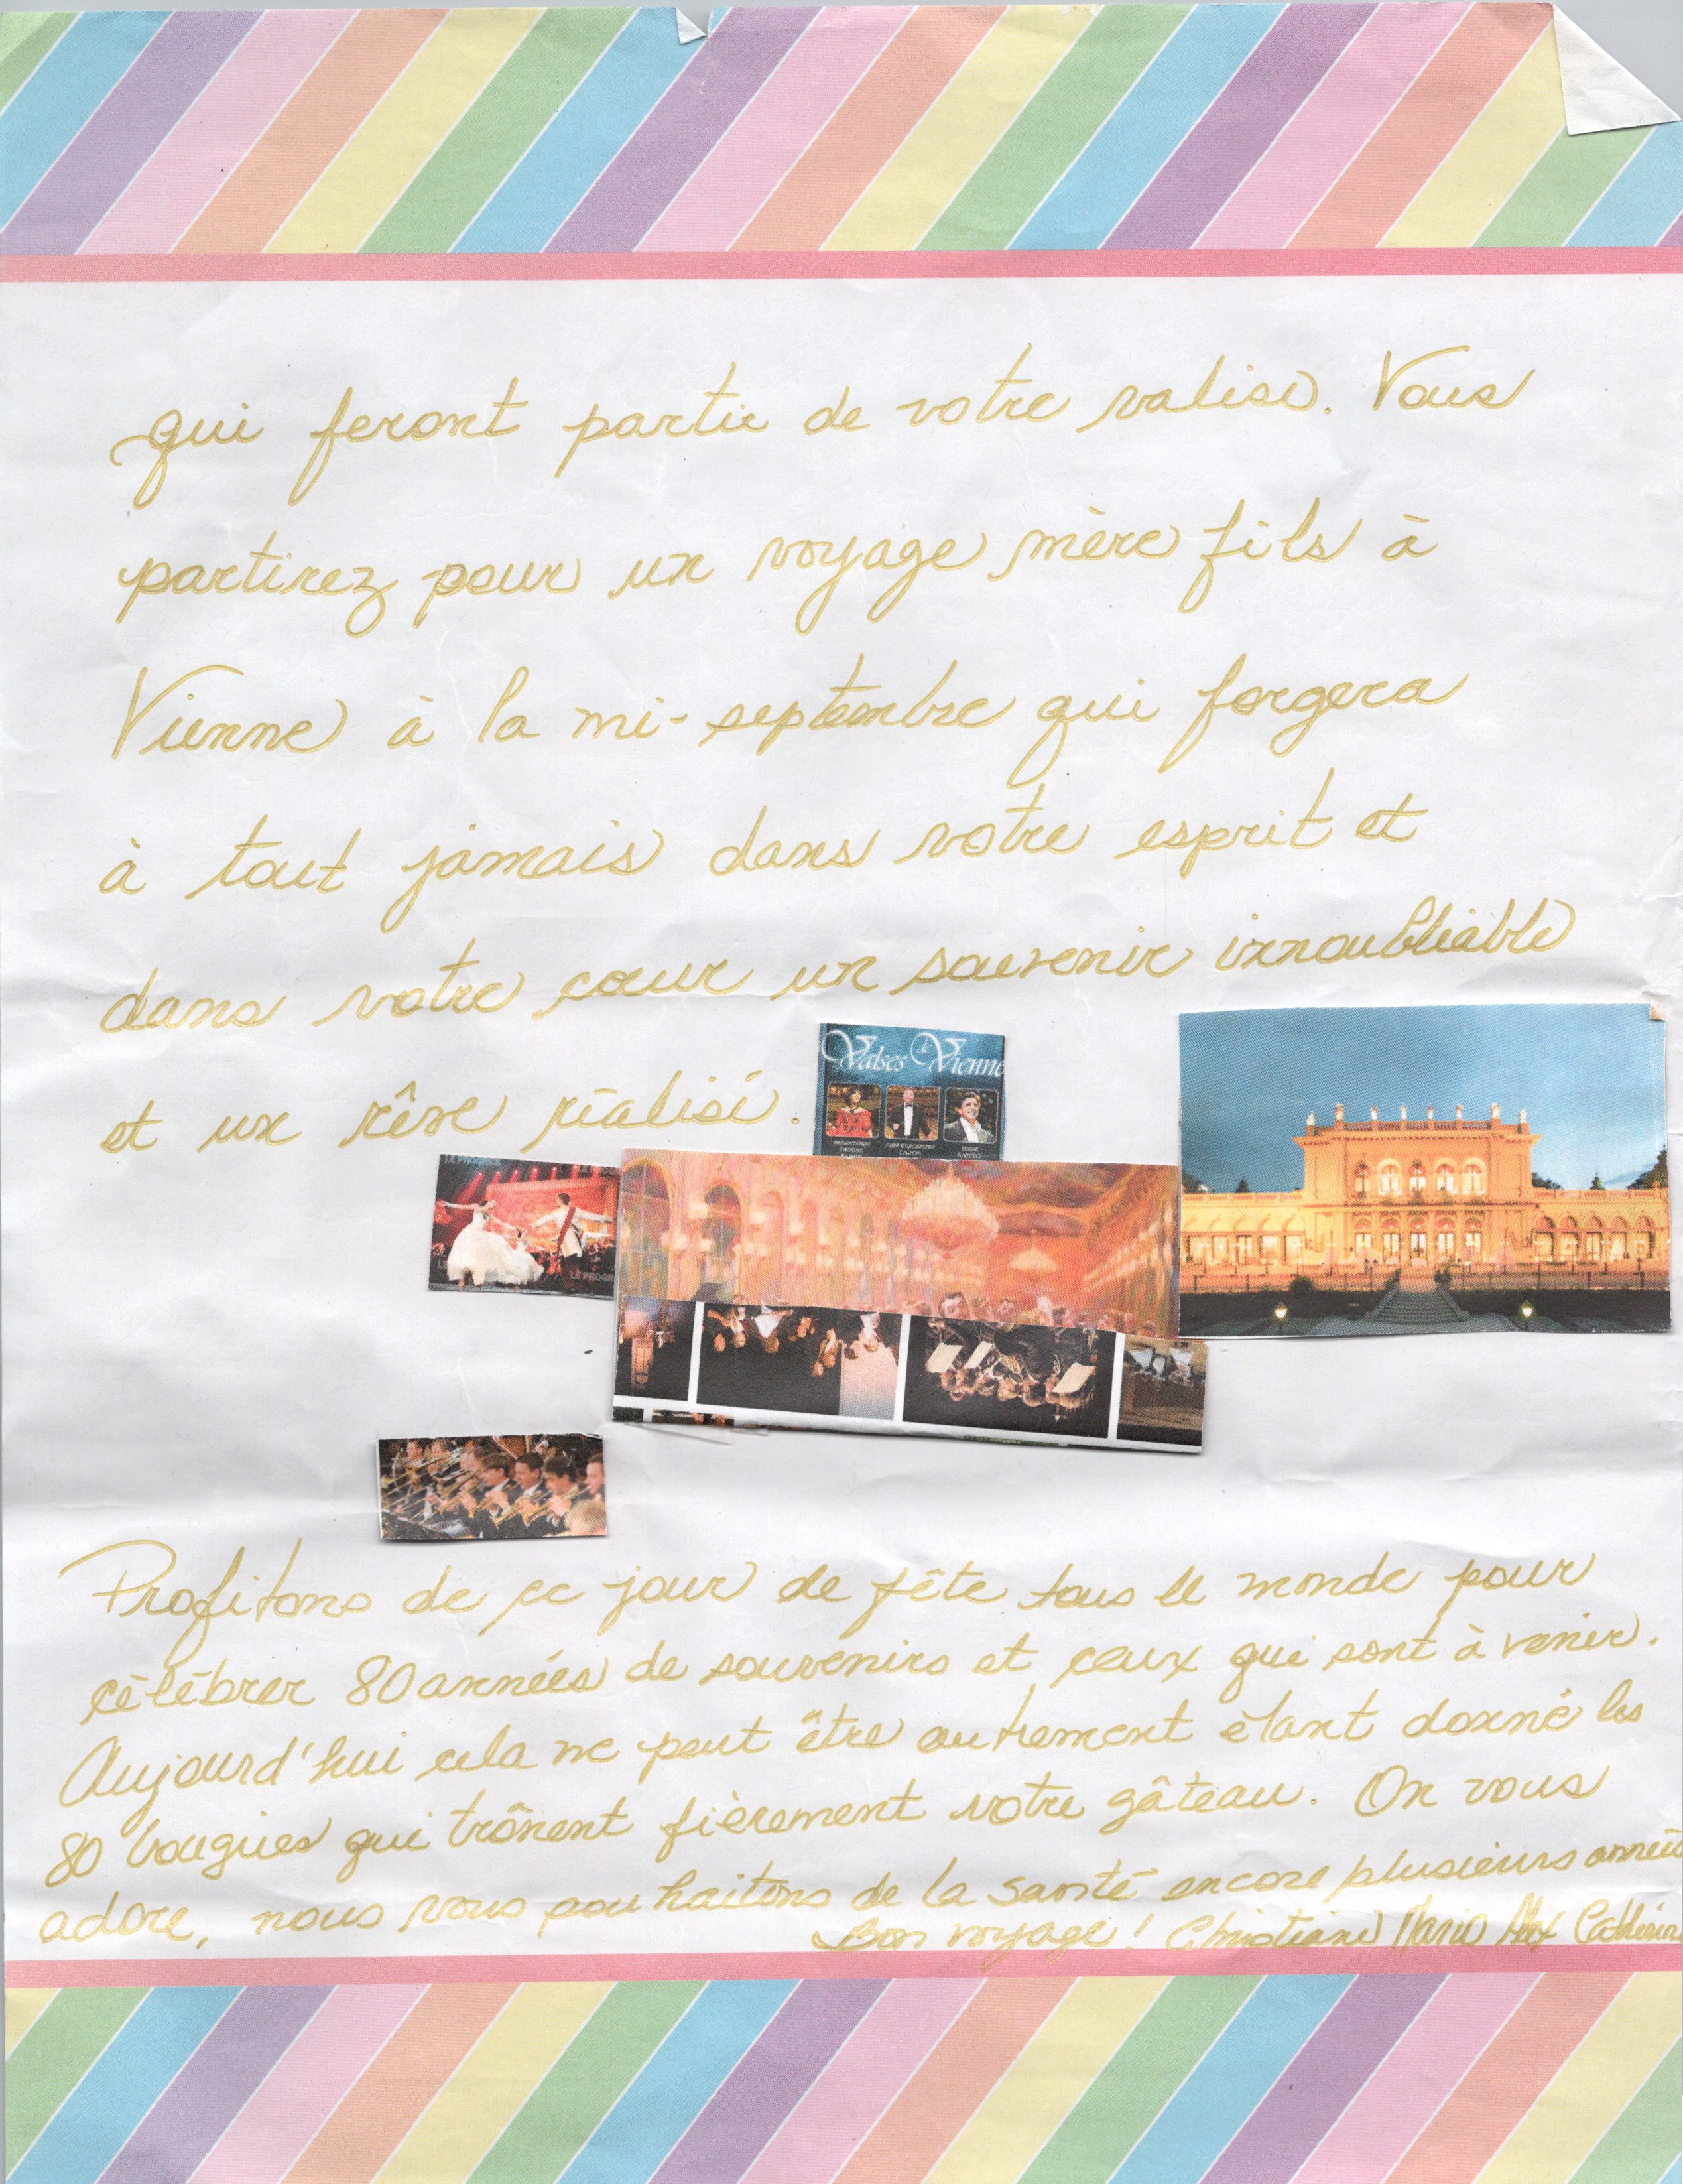 qui feront partie de votre valise. Vous
partirez pour un voyage mère fils à
Vienne à la mi-septembre qui forgera
à tout jamais dans votre esprit et
dans votre cœur un souvenir innoubliable
et un rêve réalisé.
Valses de Vienne
LE PROGR
Profitons de ce jour de fête tous le monde pour
célébrer 80 années de souvenirs et ceux qui sont à venir.
Aujourd'hui cela ne peut être autrement étant donné les
80 bougies qui trônent fièrement votre gâteau. On vous
adore, nous vous souhaitons de la santé encore plusieurs années
Bon voyage! Christiane Mario Alex Catherine